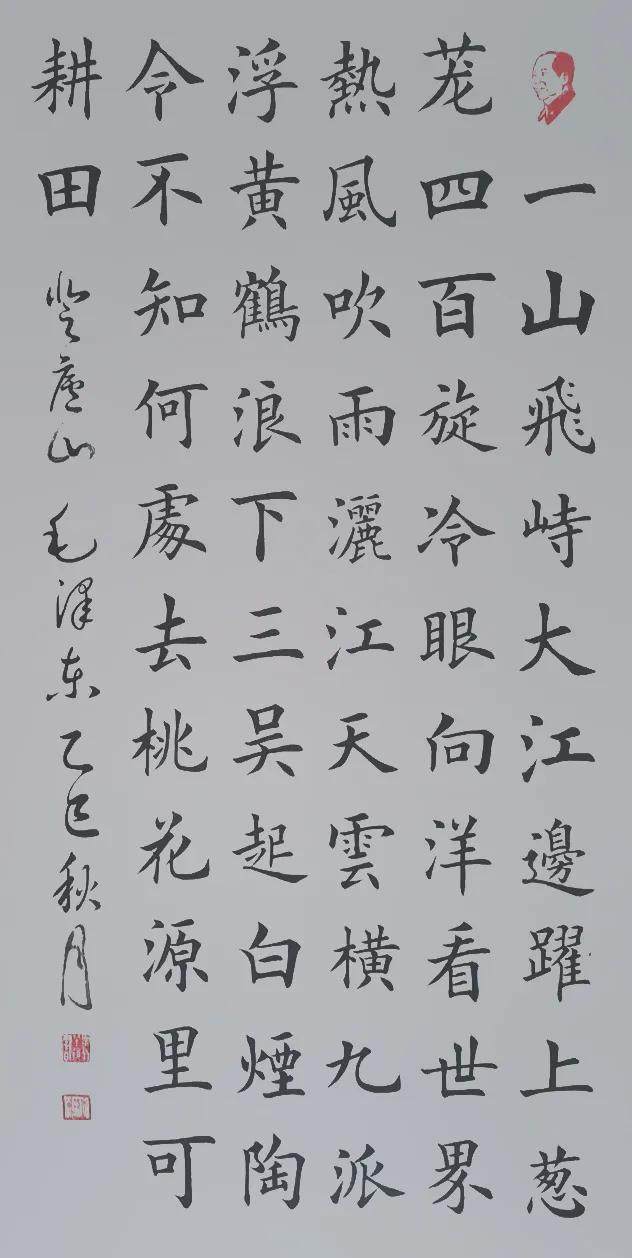 一山飛峙大江邊躍上葱
茏四百旋冷眼向洋看世界
熱風吹雨灑江天雲横九派
浮黄鶴浪下三吴起白煙陶
令不知何處去桃花源里可
耕田
登廬山 毛澤东 乙巳秋月